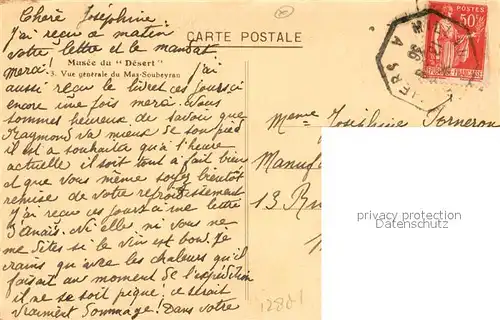 Chère Joséphine.
J'ai reçu ce matin
votre lettre et le mandat
merci!
Musée du "Désert"
3. Vue générale du Mas-Soubeyran
J'ai
aussi reçu le livret ces jours ci
encore une fois merci. Vous
sommes heureux de savoir que
Raymond va mieux de son pied
il est a souhaiter qu'a l'heure
actuelle il soit tout a fait bien
et que vous même soyez bientôt
remise de votre refroidissement
J'ai reçu ces jours ci une lettre
d'Anaïs. Ni elle, ni vous ne
me dites si le vin est bon. Je
crains qu'avec les chaleurs qu'il
faisait au moment de l'expédition
il ne se soit piqué; ce serait
vraiment dommage! Dans votre
CARTE POSTALE
POSTES
50c
Mme Joséphine
Manuf
13 Ru
privacy protection
Datenschutz